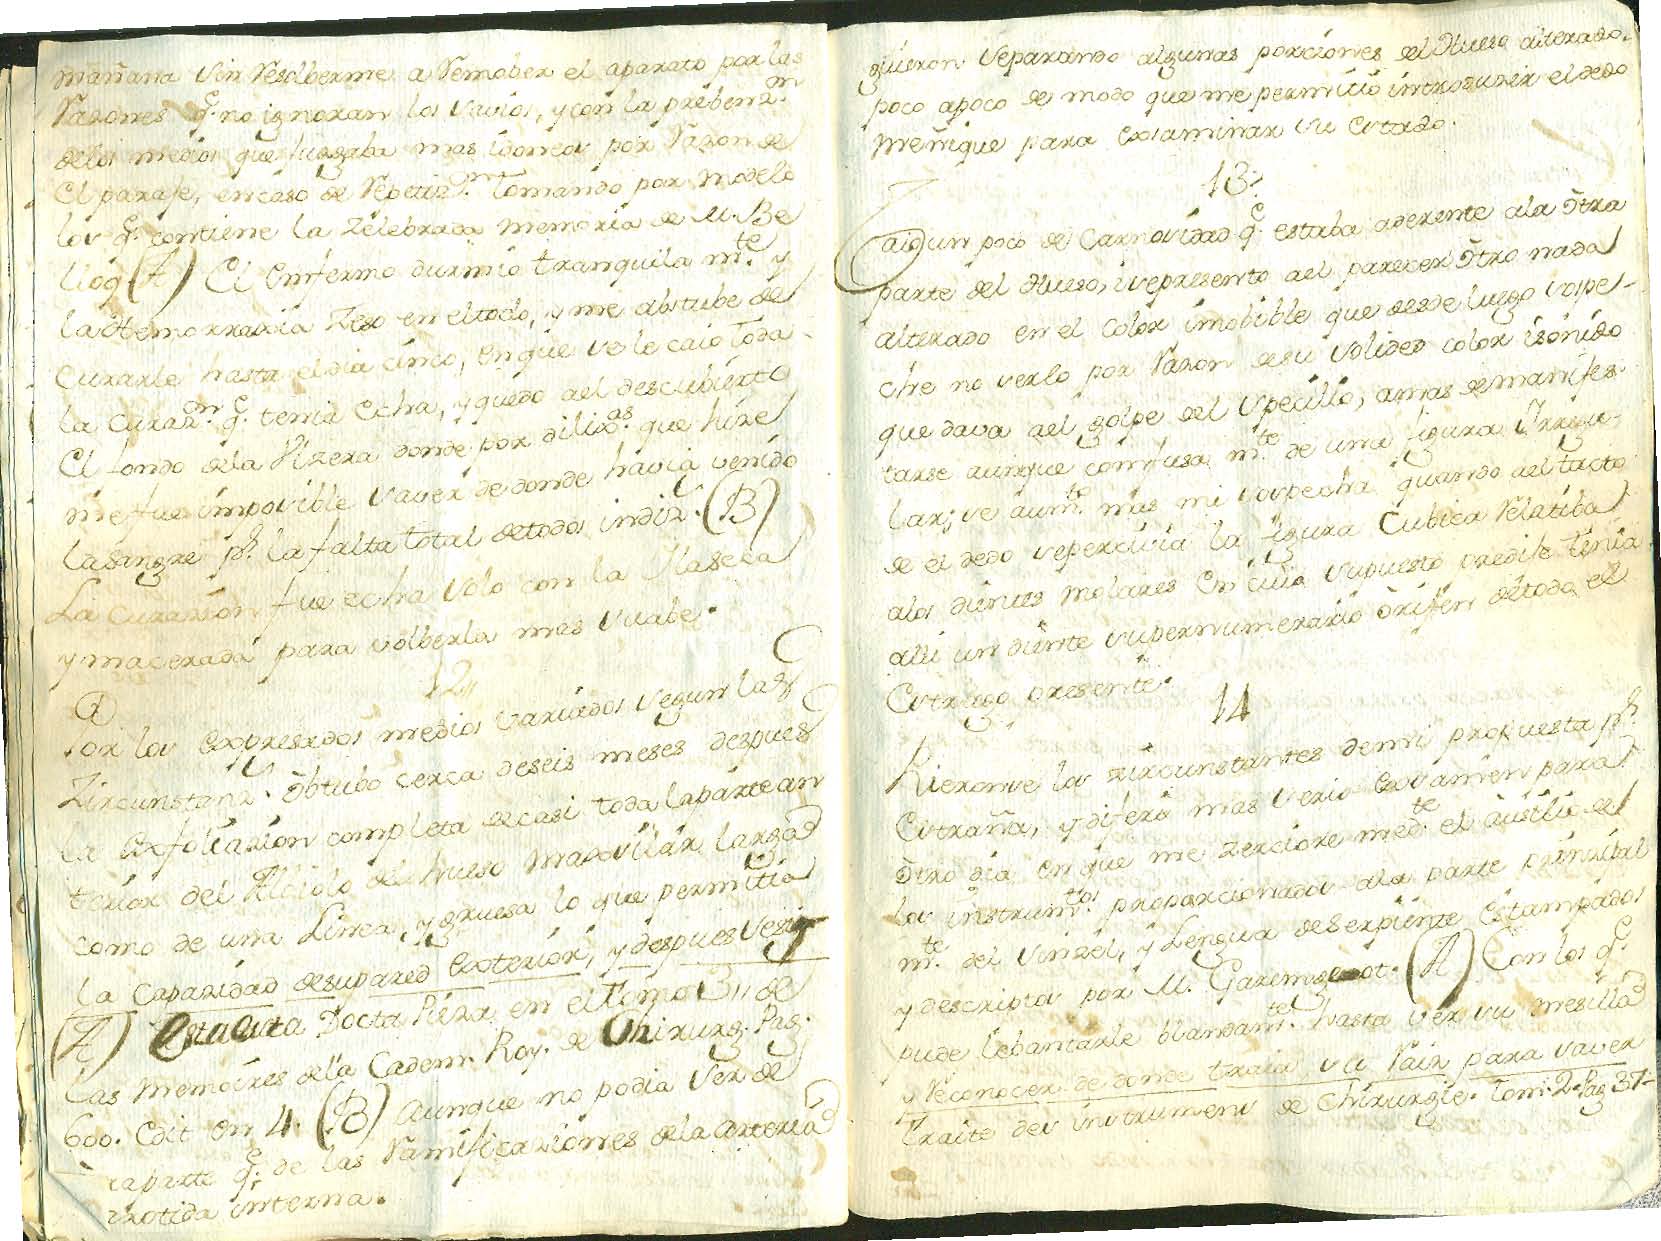 mañana sin resolberme a remober el aparato por las
razones q.e no ignoran los savios, y con la prebenz.n
de los medios que juzgaba mas idoneos por razon de
el paraje, en caso de repetiz.n tomando por modelo
los q.e contiene la zelebrada memoria de M. Be
lloq (A) El enfermo durmio tranquila m.te y
la Hemorraxia zeso en el todo, y me abstube de
curarle hasta el dia cinco, en que se le caio toda
la curaz.n q.e tenia echa, y quedo al descubierto
el fondo de la Ulzera donde por dilix.as que hize
me fue imposible saver de donde havia venido
la sangre p.r la falta total de todos indiz.s (B)
La curazion fue echa solo con la Ilaseca
y macerada para volberla mas suabe.
12,,
Por los expresados medios variados segun las
zircunstanz.s obtubo cerca de seis meses despues
la exfoliazion completa de casi toda la parte an
terior del Albiolo del hueso maxsilar larga
como de una Linea, y gruesa lo que permitia
la capazidad de su pared exterior, y despues
(A) Esta Docta Pieza en el Tomo 3,, de
las Memoires de la Cadem. Roy. de Chirurg. Pag.
600. Edit en 4. (B) Aunque no podia ser de
aparte q.e de las ramificaziones de la arteria
carotida interna.
guieron separando algunas porciones del Hueso alterado.
poco apoco de modo que me permitio introduzir el dedo
meñique para exsaminar su estado.
13,,
Caido un poco de Carnosidad q.e estaba aderente ala otra
parte del Hueso, se presento ael parecer otro nada
alterado en el color imobible que desde luego sospe-
che no serlo por razon de su solidez color isonido
que dava ael golpe del specillo, amas de manifes-
tarse aunque confusa m.te de una figura Irregu-
lar; se aum.to mas mi sospecha quando ael tacto
de el dedo se percivia la figura Cubica relatiba
alos dientes molares en cuio supuesto predije tenia
alli un diente supernumerario orijen de toda el
Estrago presente.
14
Rieronse los zircunstantes de mi propuesta p.r
Estraña, y diferi mas serio exsamen para
otro dia en que me zerciore med.te el ausilio de
los instrum.tos proporcionados ala parte prinzipal
m.te del sinzel, y Lengua de Serpiente Estampados
y descriptos por M. Garemgeot. (A) Con los q.e
pude lebantarle blandam.te hasta ver su mesilla
y reconocer de donde traia su raiz para saver
Traite des instrumens de Chirurgie. Tom. 2. Pag 37-